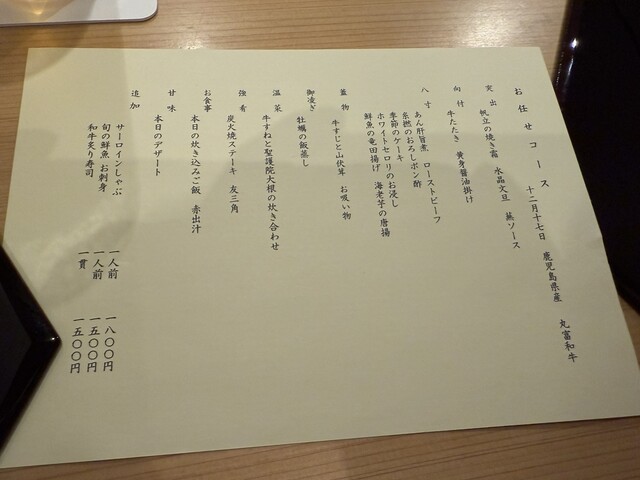 お任せコース 十二月十七日 鹿児島県産 丸富和牛
突出 帆立の焼き霜 水晶文旦 蕪ソース
向付 牛たたき 黄身醤油掛け
八寸 あん肝旨煮 ローストビーフ
糸撚のおろしポン酢
季節のケーキ
ホワイトセロリのお浸し
鮮魚の竜田揚げ 海老芋の唐揚
蓋物 牛すじと山伏茸 お吸い物
御凌ぎ 牡蠣の飯蒸し
温菜 牛すねと聖護院大根の炊き合わせ
強肴 炭火焼ステーキ 友三角
お食事 本日の炊き込みご飯 赤出汁
甘味 本日のデザート
追加
サーロインしゃぶ 一人前 一八〇〇円
旬の鮮魚 お刺身 一人前 一五〇〇円
和牛炙り寿司 一貫 一五〇〇円